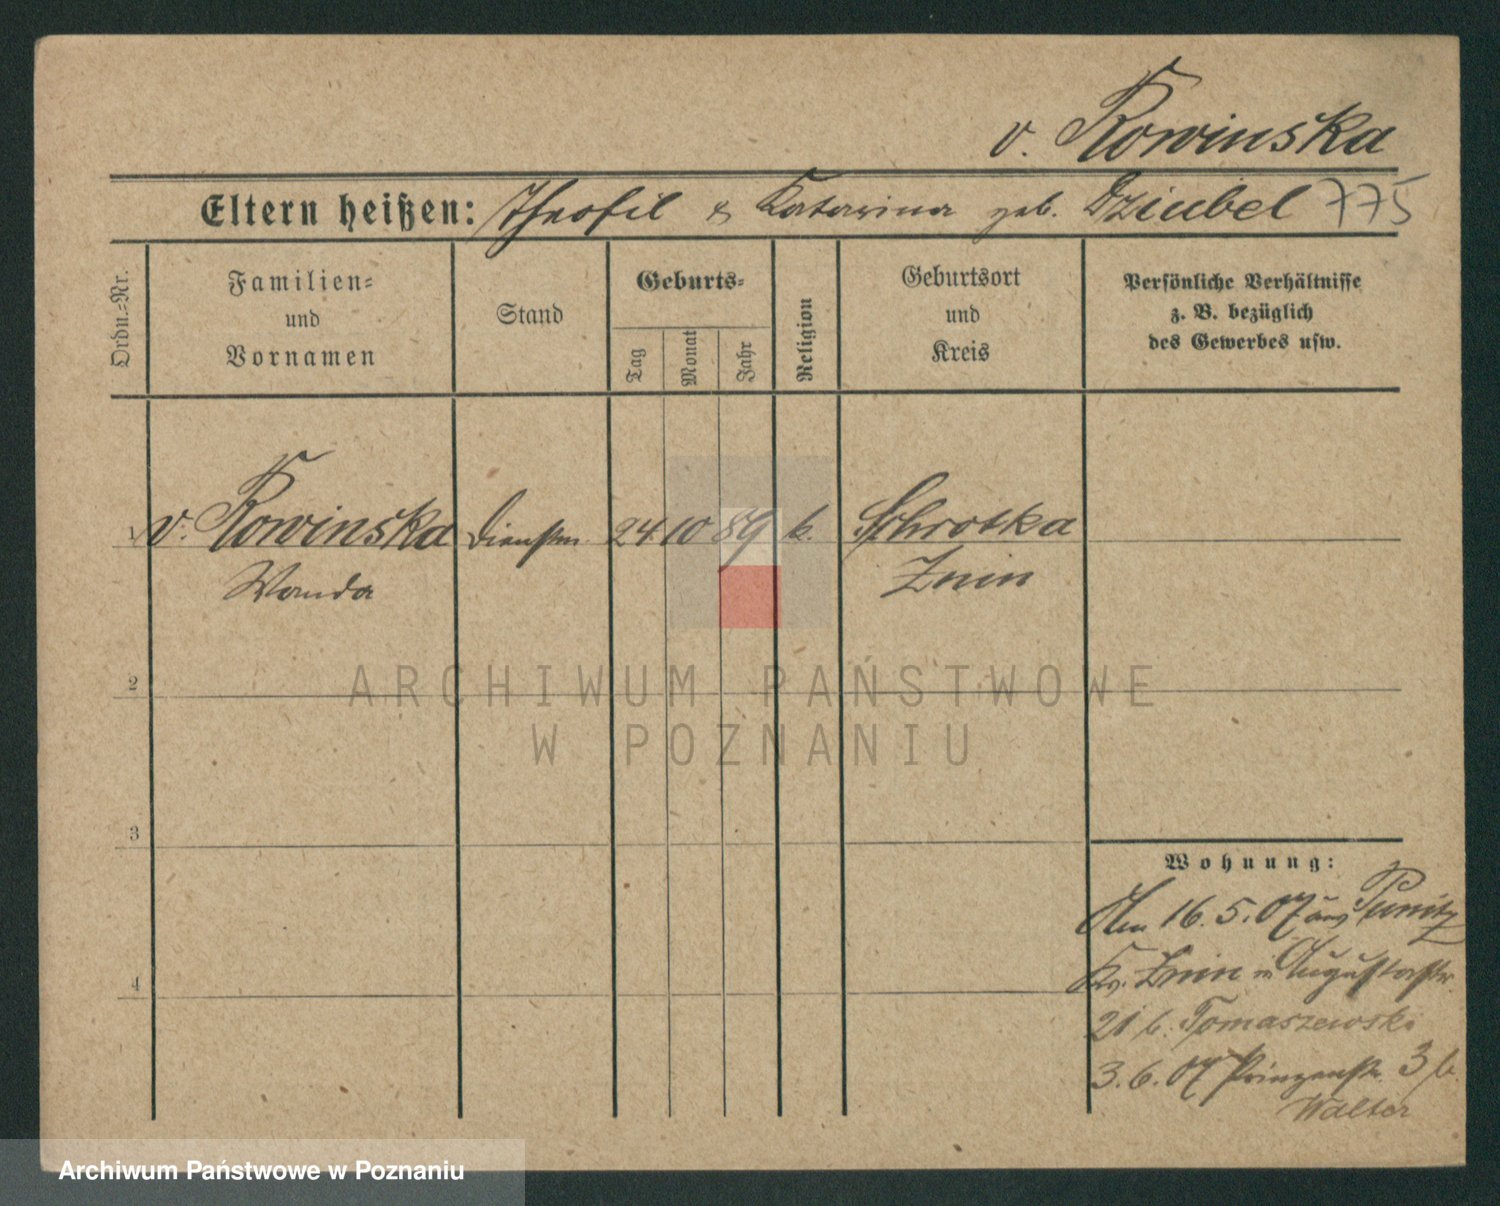 v. Rowinska
Eltern heißen: Theofil & Katarina geb. Dziubel 775
Ordn.-Nr.
Familien-
und
Vornamen
Stand
Geburts-
Tag
Monat
Jahr
Religion
Geburtsort
und
Kreis
Persönliche Verhältnisse
z. B. bezüglich
des Gewerbes usw.
1 v. Rowinska Dienstm. 24. 10 89 k. Schrotka
Wanda Znin
2
3
4
Wohnung:
Am 16. 5. 07 aus
Kr. Znin in Augustastr.
21 b. Tomaszewski
3. 6. 07 Prinzenstr. 3 b.
Walter
ARCHIWUM PAŃSTWOWE
W POZNANIU
Archiwum Państwowe w Poznaniu